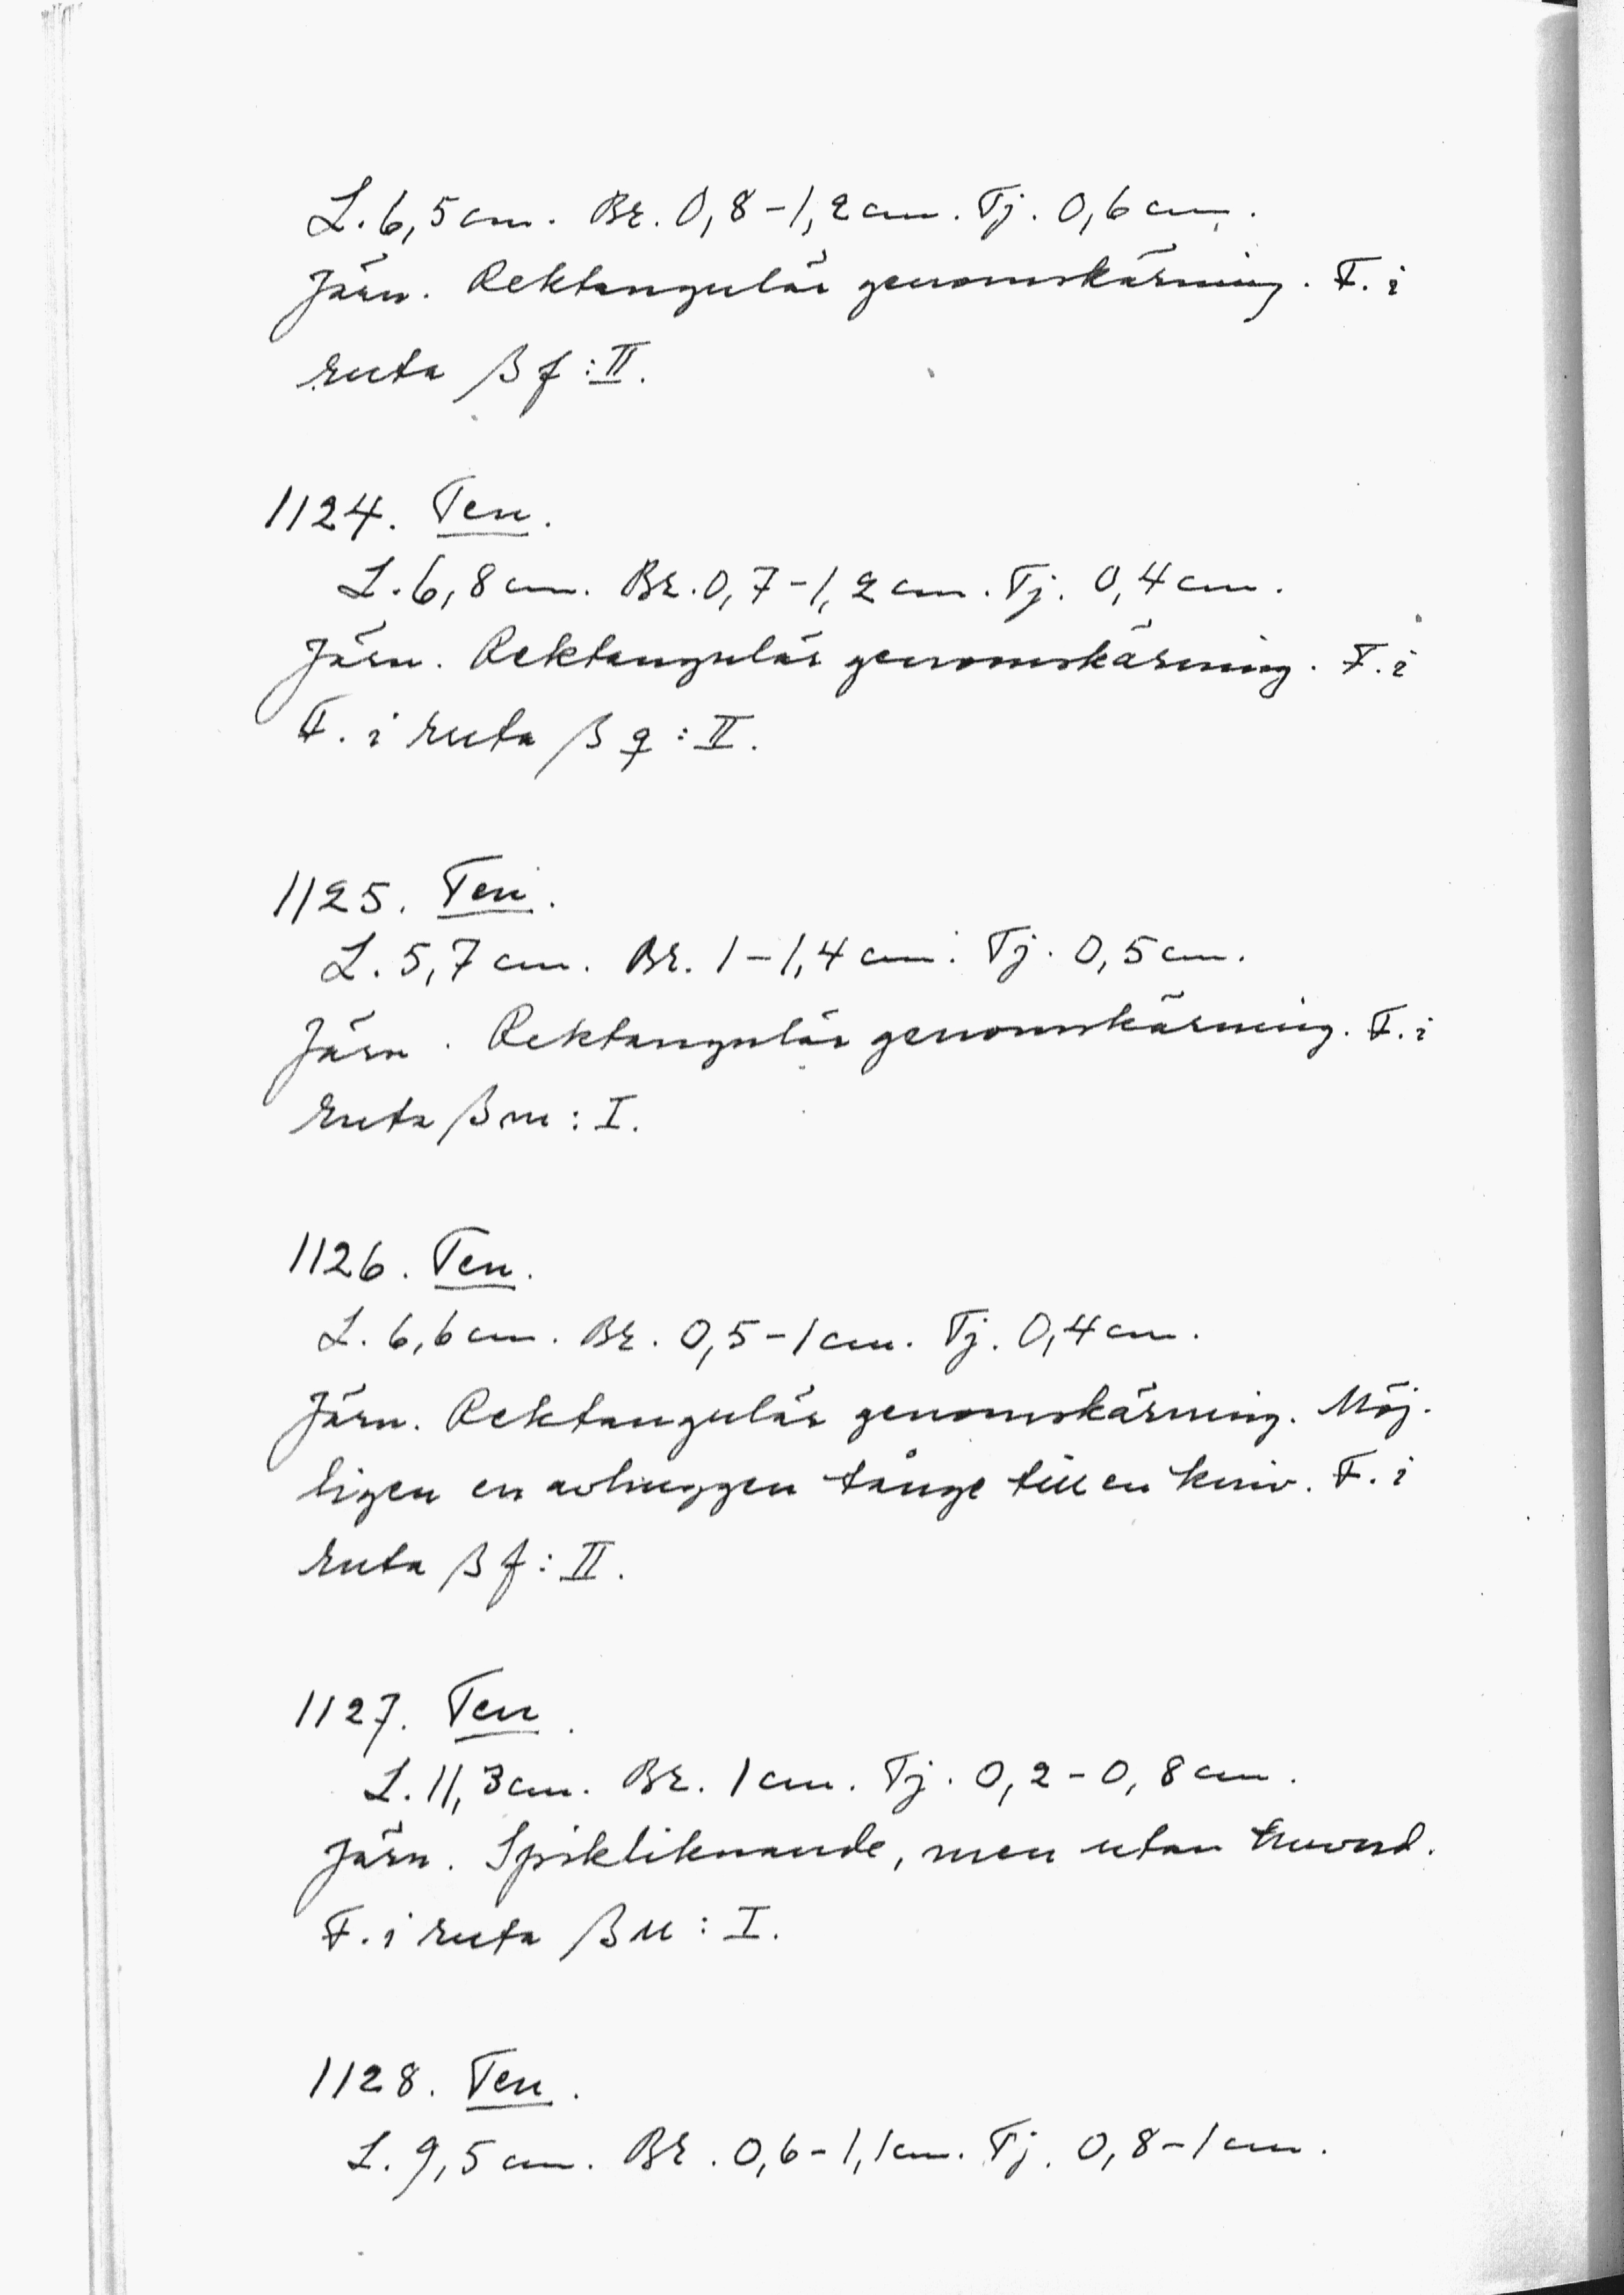 L. 6,5 cm. Br. 0,8-1,2 cm. Tj. 0,6 cm.
Järn. Rektangulär genomskärning. F. i
ruta β f : II.
1124. Ten.
L. 6,8 cm. Br. 0,7-1,2 cm. Tj. 0,4 cm.
Järn. Rektangulär genomskärning. F. i
F. i ruta β q : II.
1125. Ten.
L. 5,7 cm. Br. 1-1,4 cm. Tj. 0,5 cm.
Järn. Rektangulär genomskärning. F. i
ruta β m : I.
1126. Ten.
L. 6,6 cm. Br. 0,5-1 cm. Tj. 0,4 cm.
Järn. Rektangulär genomskärning. Möj-
ligen en avhuggen tånge till en kniv. F. i
ruta β f : II.
1127. Ten.
L. 11,3 cm. Br. 1 cm. Tj. 0,2-0,8 cm.
Järn. Spikliknande, men utan huvud.
F. i ruta β n : I.
1128. Ten.
L. 9,5 cm. Br. 0,6-1,1 cm. Tj. 0,8-1 cm.